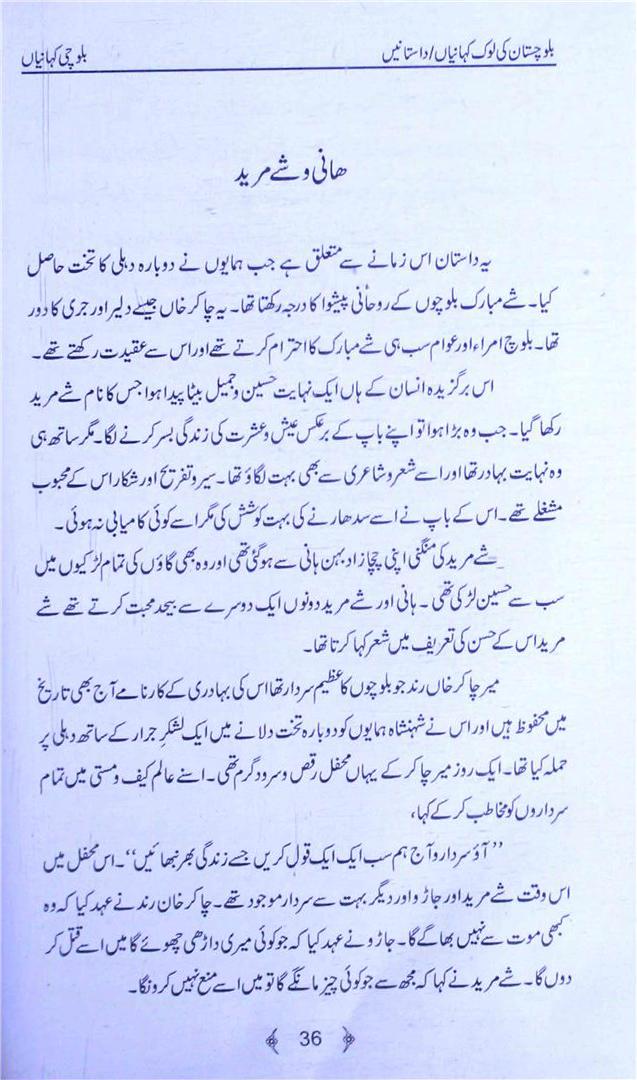 بلوچستان کی لوک کہانیاں/داستانیں
بلوچی کہانیاں
ھانی و شے مرید
یہ داستان اس زمانے سے متعلق ہے جب ہمایوں نے دوبارہ دہلی کا تخت حاصل
کیا۔ شے مبارک بلوچوں کے روحانی پیشوا کا درجہ رکھتا تھا۔ یہ چاکر خاں جیسے دلیر اور جری کا دور
تھا۔ بلوچ امراء اور عوام سب ہی شے مبارک کا احترام کرتے تھے اور اس سے عقیدت رکھتے تھے۔
اس برگزیدہ انسان کے ہاں ایک نہایت حسین و جمیل بیٹا پیدا ہوا جس کا نام شے مرید
رکھا گیا۔ جب وہ بڑا ہوا تو اپنے باپ کے برعکس عیش و عشرت کی زندگی بسر کرنے لگا۔ مگر ساتھ ہی
وہ نہایت بہادر تھا اور اسے شعر و شاعری سے بھی بہت لگاؤ تھا۔ سیر و تفریح اور شکار اس کے محبوب
مشغلے تھے۔ اس کے باپ نے اسے سدھارنے کی بہت کوشش کی مگر اسے کوئی کامیابی نہ ہوئی۔
شے مرید کی منگنی اپنی چچا زاد بہن ہانی سے ہو گئی تھی اور وہ بھی گاؤں کی تمام لڑکیوں میں
سب سے حسین لڑکی تھی۔ ہانی اور شے مرید دونوں ایک دوسرے سے بیحد محبت کرتے تھے شے
مرید اس کے حسن کی تعریف میں شعر کہا کرتا تھا۔
میر چاکر خاں رند جو بلوچوں کا عظیم سردار تھا اس کی بہادری کے کارنامے آج بھی تاریخ
میں محفوظ ہیں اور اس نے شہنشاہ ہمایوں کو دوبارہ تخت دلانے میں ایک لشکرِ جرار کے ساتھ دہلی پر
حملہ کیا تھا۔ ایک روز میر چاکر کے یہاں محفل رقص و سرود گرم تھی۔ اسنے عالم کیف و مستی میں تمام
سرداروں کو مخاطب کر کے کہا،
”آؤ سردارو آج ہم سب ایک ایک قول کریں جسے زندگی بھر نبھائیں“۔ اس محفل میں
اس وقت شے مرید اور جاڑو اور دیگر بہت سے سردار موجود تھے۔ چاکر خان رند نے عہد کیا کہ وہ
کبھی موت سے نہیں بھاگے گا۔ جاڑو نے عہد کیا کہ جو کوئی میری داڑھی چھوئے گا میں اسے قتل کر
دوں گا۔ شے مرید نے کہا کہ مجھ سے جو کوئی چیز مانگے گا تو میں اسے منع نہیں کرونگا۔
36